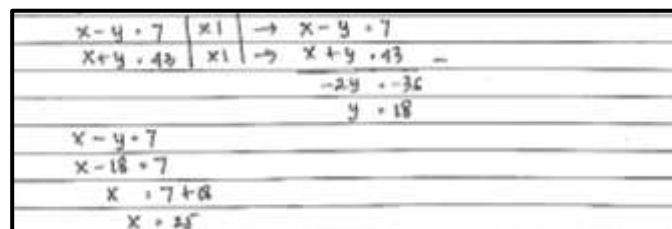 x - y = 7 | x1 | → x - y = 7
x + y = 43 | x1 | → x + y = 43 -
-2y = -36
y = 18
x - y = 7
x - 18 = 7
x = 7 + 18
x = 25